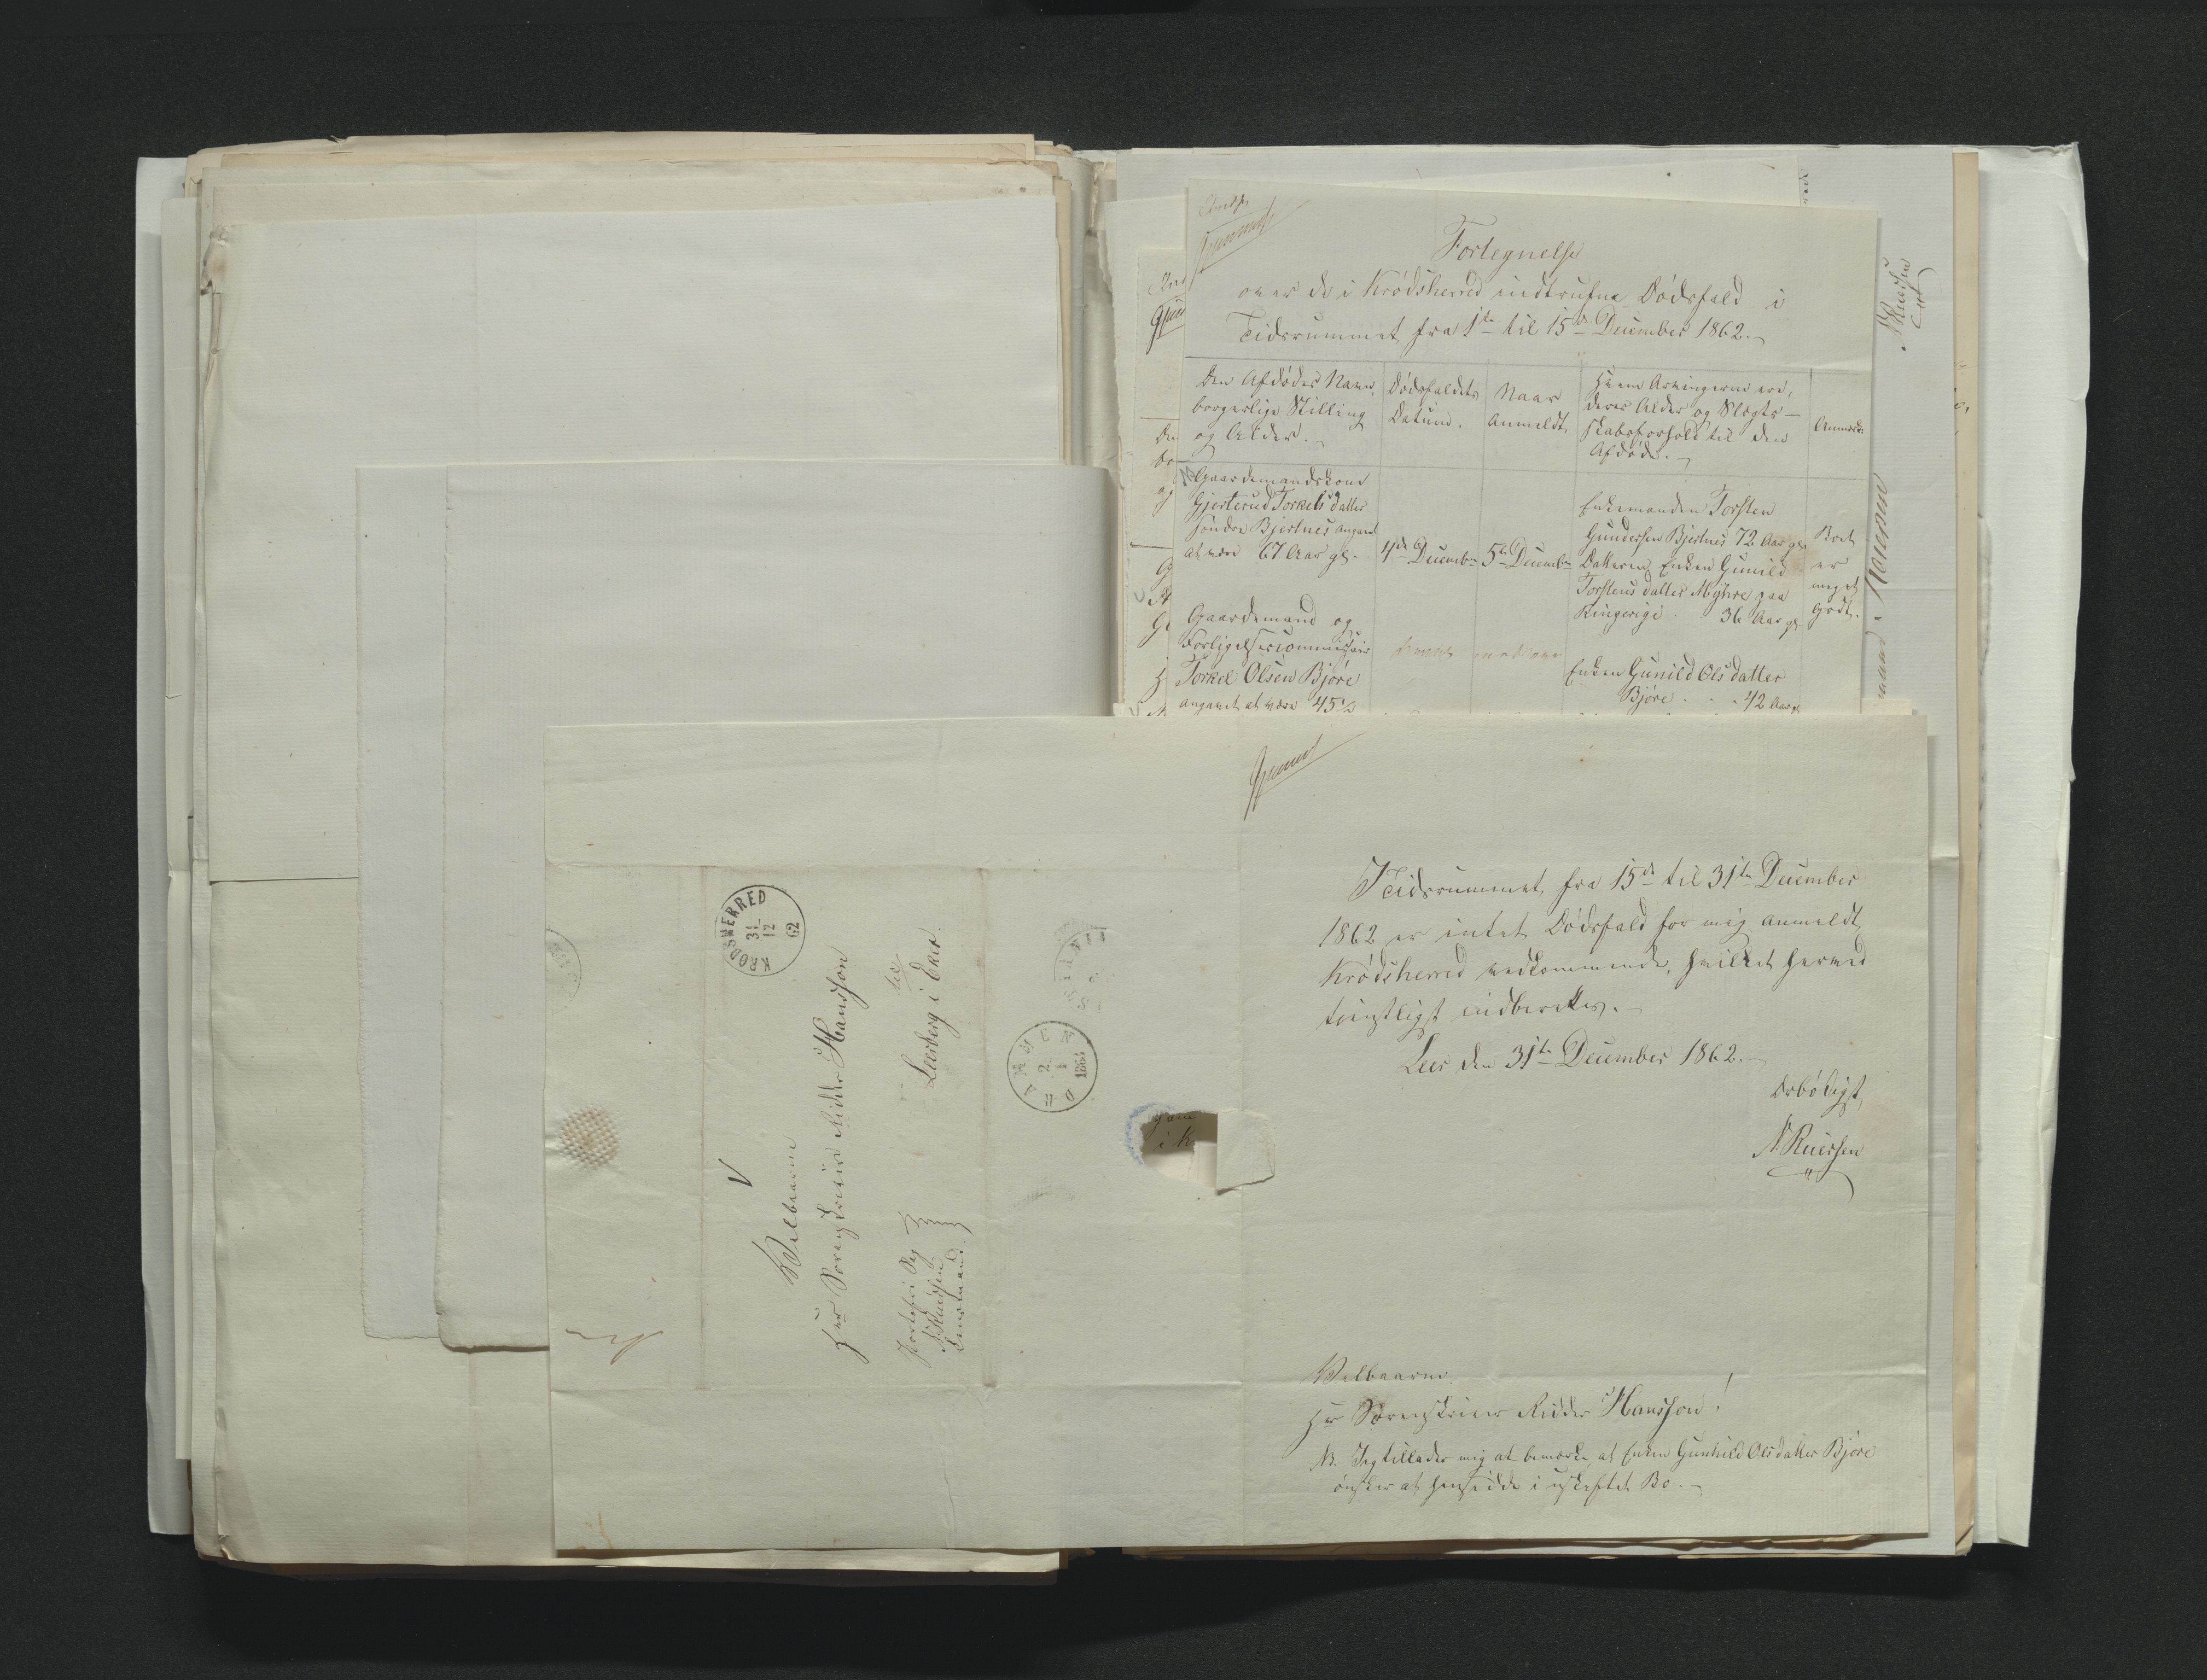 Fortegnelse
over de i Krødsherred indtrufne Dødsfald i
Tidsrummet fra 1ste til 15de December 1862.
Den Afdødes Navn, borgerlige Stilling og Alder.
Dødsfaldets Datum.
Naar Anmeldt
Hvem Arvingerne ere, deres Alder og Slægtskabsforhold til den Afdøde.
Gaardmandskone
Torkelsdatter
søndre Bjertnes angivet
at være 67 Aar gl.
4de Decemb.
5te Decemb.
Enkemanden Torsten
Gundersen Bjertnes 72 Aar gl.
Datteren Enken Gunild
Torstensdatter Myhre paa
Ringerige 36 Aar gl.
Boet
er
meget
godt.
Gaardmand og
Forligelsescommissair
Torkel Olsen Bjøre
angivet at være 45½
Enken Gunild Olsdatter
Bjøre . . 42 Aar gl
I Tidsrummet fra 15de til 31te December
1862 er intet Dødsfald for mig anmeldt
Krødsherred vedkommende, hvilket herved
tjenstligst indberettes.
Leer den 31te December 1862.
Ærbødigst
Velbaarne
Hr Sorenskriver Ridder Hansson!
NB. Jeg tillader mig at bemærke, at Enken Gunhild Olsdatter Bjøre
ønsker at hensidde i uskiftet Bo.
KRØDSHERRED
31
12
62
Velbaarne
Herr Sorenskriver Ridder Hansson
Leerberg i Eker.
Lensmand
DRAMMEN
2
1
1863